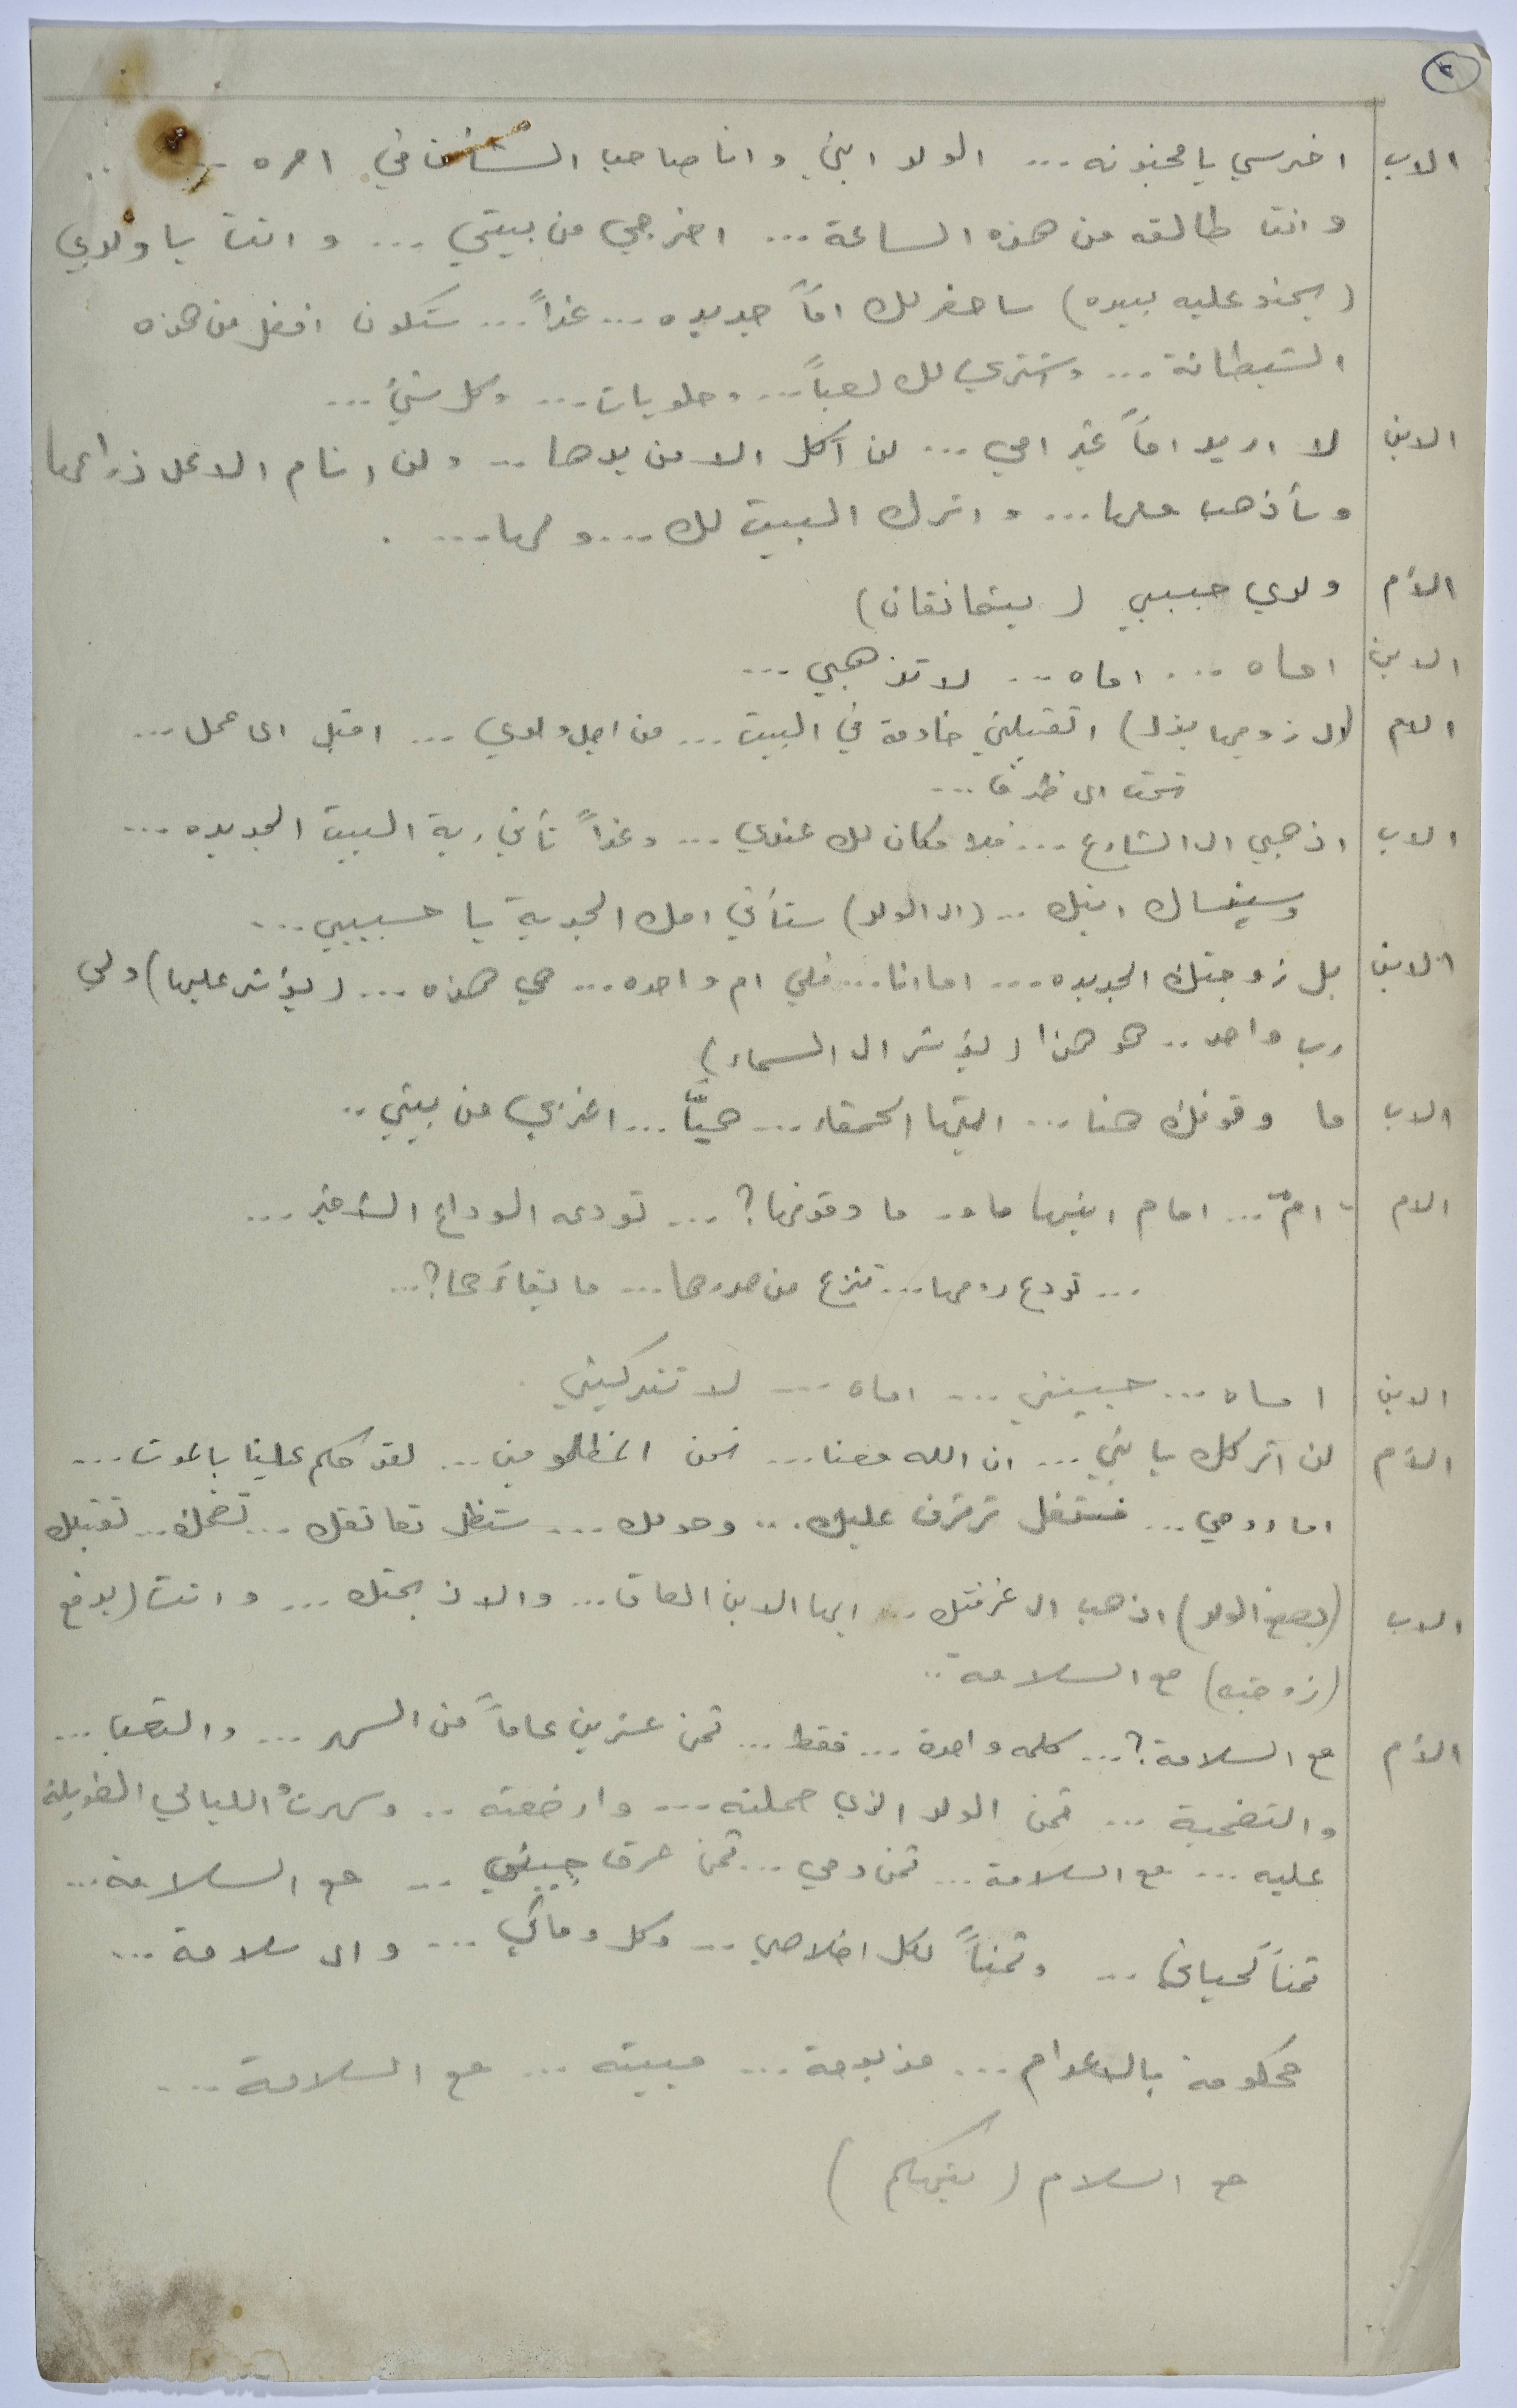 ٢
الاب اخرسي يا مجنونه ... الولد ابني وانا صاحب الشأن في امره ...
وانت طالقه من هذه الساعة ... اخرجي من بيتي ... وانت يا ولدي
(يحنو عليه بيده) ساحضر لك اماً جديده ... غداً ... ستكون افضل من هذه
الشيطانة ... وشتري لك لعباً ... وحلويات ... وكل شيء ...
الابن لا اريد اماً غير امي ... لن آكل الا من يدها ... ولن انام الا على ذراعها
وسأذهب معها ... واترك البيت لك ... ولها ... .
الأم ولدي حبيبي (يتعانقان)
الابن اماه ... اماه ... لا تذهبي ...
الام (الى زوجها بذل) اتقبلني خادمة في البيت ... من اجل ولدي ... اقبل اى عمل ...
تحت اى ظرف ...
الاب اذهبي الى الشارع ... فلا مكان لك عندي ... وغداً تأتي ربة البيت الجديده ...
وسينساك ابنك ... (الى الولد) ستأتي امك الجديدة يا حبيبي ...
الابن بل زوجتك الجديده ... اما انا ... فلي ام واحده ... هي هذه ... (يؤشر عليها) ولي
رب واحد .. هو هذا (يؤشر الى السماء)
الاب ما وقوفك هنا ... ايتها الحمقاء ... هيّا ... اغربي من بيتي ..
الام امٌ ... امام ابنها ما وقوفها؟ ... تودعه الوداع الأخير ...
... تودع روحها ... تنزع من صدرها ... ما بقاؤها؟ ...
الابن اماه ... حبيبتي ... اماه ... لا تتركيني .
الأم لن اتركك يا بني ... ان الله معنا ... نحن المظلومين ... لقد حكم علينا بالموت ...
اما روحي ... فستظل ترفرف عليك ... وحولك ... ستظل تعانقك ... تضمك ... تقبلك
الاب (يصفع الولد) اذهب الى غرفتك ... ايها الابن العاق ... والا ذبحتك ... وانت (يدفع
(زوجته) مع السلامة ..
الأم مع السلامة؟ ... كلمه واحدة ... فقط ... ثمن عشرين عاماً من السهر ... والتعب ...
والتضحية ... ثمن الولد الذي حملته ... وارضعته .. وسهرتُ الليالي الطويلة
عليه ... مع السلامة ... ثمن دمي ... ثمن عرق جبيني ... مع السلامة ...
ثمناً لحياتي ... وثمناً لكل اخلاصي ... وكل وفائي ... واى سلامة ...
محكومة بالاعدام ... مذبوحة ... ميتته ... مع السلامة ...
مع السلام (بتهكم)